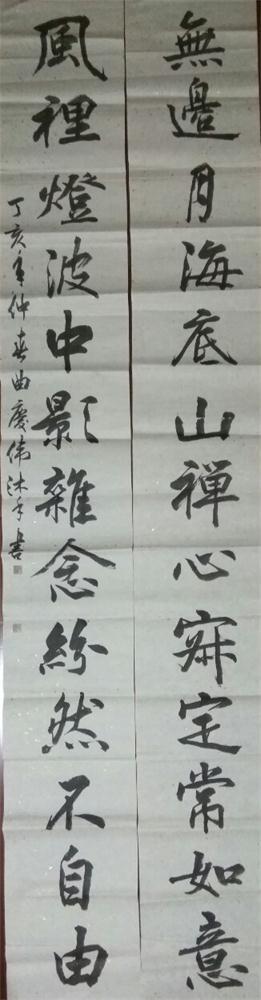 無邊月海底山禪心寂定常如意
風裡燈波中影雜念紛然不自由
丁亥年仲春曲慶伟沐手書